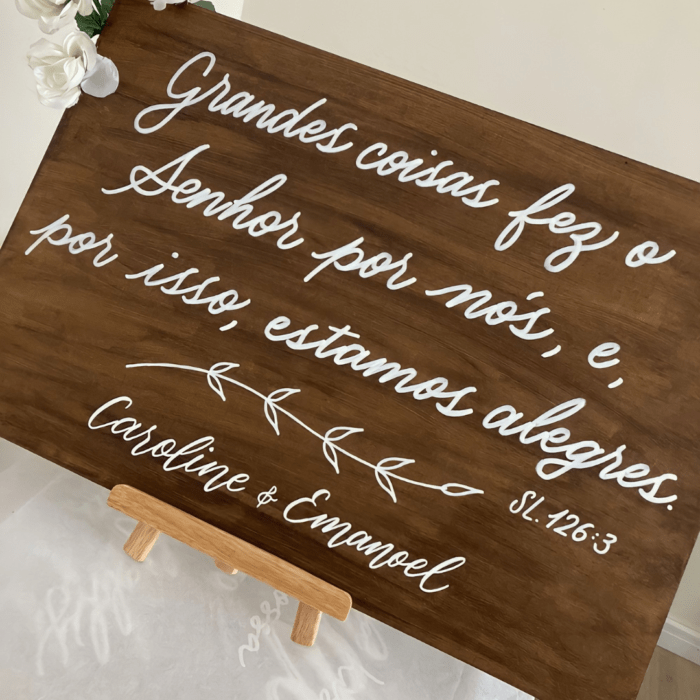 Grandes coisas fez o
Senhor por nós, e,
por isso, estamos alegres.
SL. 126:3
Caroline & Emanoel